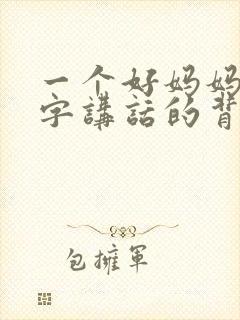 一个好妈妈
字講話的背
包擁軍